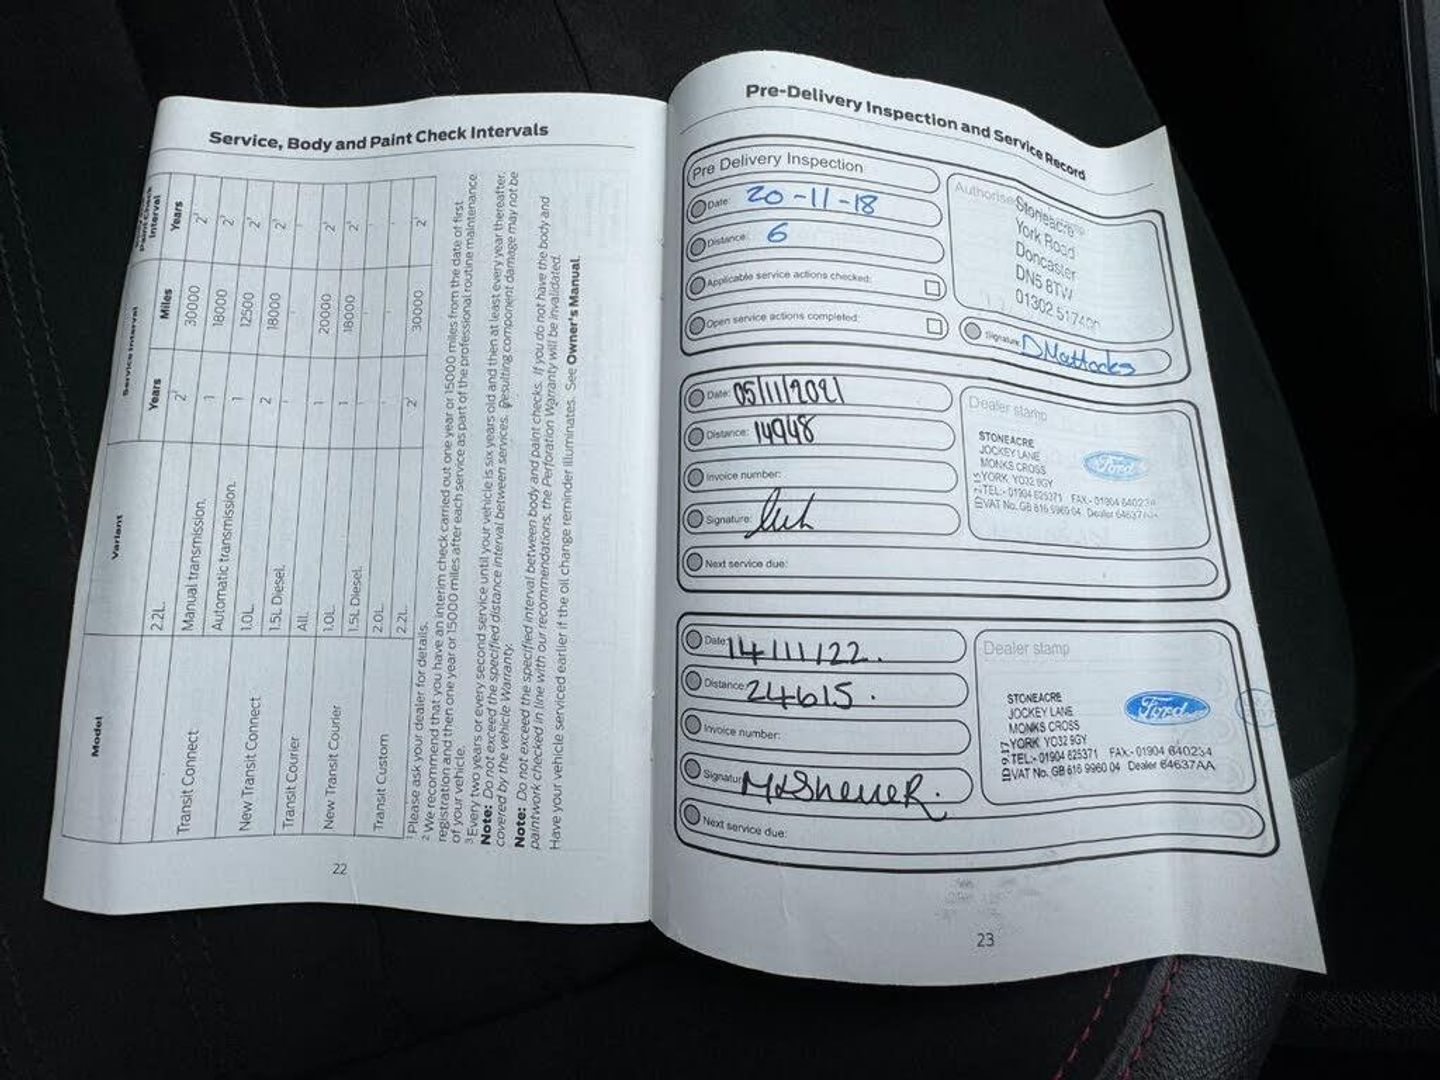 Service, Body and Paint Check Intervals
Model
Variant
Service Interval
Paint Check
Interval
Years
Miles
Years
2.2L.
2²
30000
2³
Transit Connect
Manual transmission.
1
18000
2³
Automatic transmission.
1
12500
2³
New Transit Connect
1.0L.
2
18000
2³
1.5L Diesel.
-
-
-
Transit Courier
All.
1
20000
2³
New Transit Courier
1.0L.
1
18000
2³
1.5L Diesel.
-
-
-
Transit Custom
2.0L.
-
-
-
2.2L.
2²
30000
2³
¹ Please ask your dealer for details.
² We recommend that you have an interim check carried out one year or 15000 miles from the date of first
registration and then one year or 15000 miles after each service as part of the professional routine maintenance
of your vehicle.
³ Every two years or every second service until your vehicle is six years old and then at least every year thereafter.
Note: Do not exceed the specified distance interval between services. Resulting component damage may not be
covered by the vehicle Warranty.
Note: Do not exceed the specified interval between body and paint checks. If you do not have the body and
paintwork checked in line with our recommendations, the Perforation Warranty will be invalidated.
Have your vehicle serviced earlier if the oil change reminder illuminates. See Owner's Manual.
22
Pre-Delivery Inspection and Service Record
Pre Delivery Inspection
Date: 20-11-18
Distance: 6
Applicable service actions checked:
Open service actions completed:
Stoneacre
York Road
Doncaster
DN5 8TW
01302 517400
Signature: DMattocks
Date: 05/11/2021
Distance: 14948
Invoice number:
Signature:
Next service due:
Dealer stamp
STONEACRE
JOCKEY LANE
MONKS CROSS
YORK YO32 9GY
TEL:- 01904 625371 FAX:- 01904 640234
VAT No. GB 616 9960 04 Dealer 64637AA
Ford
Date: 14/11/22.
Distance: 24615.
Invoice number:
Signature:
Next service due:
Dealer stamp
STONEACRE
JOCKEY LANE
MONKS CROSS
YORK YO32 9GY
TEL:- 01904 625371 FAX:- 01904 640234
VAT No. GB 616 9960 04 Dealer 64637AA
ID 9.17
Ford
23